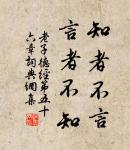 知者不言
言者不知
老子德經第五十
六章詞典網集